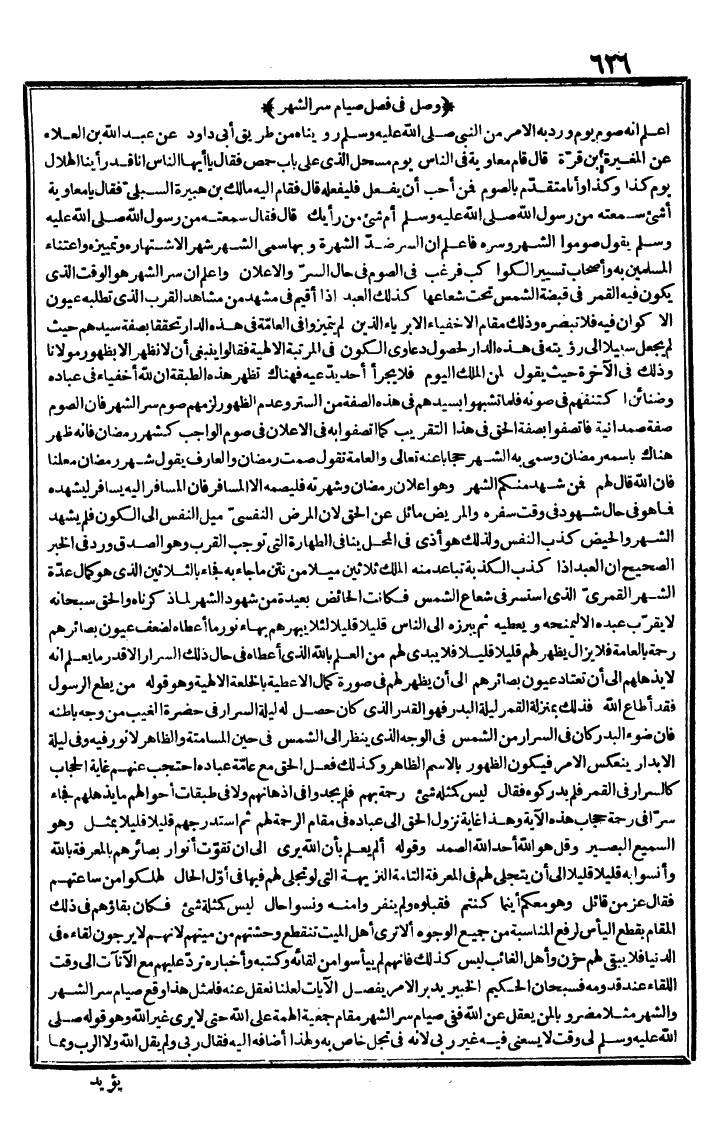 ٦٣٦
﴿وصل فى فصل صيام سر الشهر﴾
اعلم انه صوم يوم ورد به الامر من النبى صلى الله عليه وسلم رويناه من طريق أبى داود عن عبد الله بن العلاء
عن المغيرة بن قرّة قال قام معاوية فى الناس يوم مسحل الذى على باب حمص فقال يا أيها الناس انا قد رأينا الهلال
يوم كذا وكذا وأنا متقدّم بالصوم فمن أحب أن يفعل فليفعله قال فقام اليه مالك بن هبيرة السبلىّ فقال يا معاوية
أشئ سمعته من رسول الله صلى الله عليه وسلم أم شئ من رأيك قال فقال سمعته من رسول الله صلى الله عليه
وسلم يقول صوموا الشهر وسره فاعلم ان السر ضدّ الشهرة وبها سمى الشهر شهر الاشتهاره وتمييزه واعتناء
المسلمين به وأصحاب تسيير الكواكب فرغب فى الصوم فى حال السرّ والاعلان واعلم ان سر الشهر هو الوقت الذى
يكون فيه القمر فى قبضة الشمس تحت شعاعها كذلك العبد اذا أقيم فى مشهد من مشاهد القرب الذى تطلبه عيون
الاكوان فيه فلا تبصره وذلك مقام الاخفياء الابرياء الذين لم يتميزوا فى العامّة فى هذه الدار تحققا بصفة سيدهم حيث
لم يجعل سبيلا الى رؤيته فى هذه الدار لحصول دعاوى الكون فى المرتبة الالهية فقالوا ينبغى أن لا نظهر الا بظهور مولانا
وذلك فى الآخرة حيث يقول لمن الملك اليوم فلا يجرأ أحد يدّعيه فهناك تظهر هذه الطبقة ان لله أخفياء فى عباده
وضنائن اكتنفهم فى صونه فلما تشبهوا بسيدهم فى هذه الصفة من الستر وعدم الظهور لزمهم صوم سر الشهر فان الصوم
صفة صمدانية فاتصفوا بصفة الحق فى هذا التقريب كما اتصفوا به فى الاعلان فى صوم الواجب كشهر رمضان فانه ظهر
هناك باسمه رمضان وسمى به الشهر حجابا عنه تعالى والعامة تقول صمت رمضان والعارف يقول شهر رمضان معلنا
فان الله قال لهم فمن شهد منكم الشهر وهو اعلان رمضان وشهرته فليصمه الا المسافر فان المسافر اليه يسافر ليشهده
فما هو فى حال شهود فى وقت سفره والمريض مائل عن الحق لان المرض النفسىّ ميل النفس الى الكون فلم يشهد
الشهر والحيض كذب النفس ولذلك هو أذى فى المحل ينافى الطهارة التى توجب القرب وهو الصدق ورد فى الخبر
الصحيح ان العبد اذا كذب الكذبة تباعد منه الملك ثلاثين ميلا من نتن ما جاء به فجاء بالثلاثين الذى هو كمال عدّة
الشهر القمرىّ الذى استسر فى شعاع الشمس فكانت الحائض بعيدة من شهود الشهر لما ذكرناه والحق سبحانه
لا يقرّب عبده الا ليمنحه ويعطيه ثم يبرزه الى الناس قليلا قليلا لئلا يبهرهم بهاء نور ما أعطاه لضعف عيون بصائرهم
رحمة بالعامة فلا يزال يظهر لهم قليلا قليلا فلا يبدى لهم من العلم بالله الذى أعطاه فى حال ذلك السرار الا قدر ما يعلم انه
لا يذهلهم الى أن تعتاد عيون بصائرهم الى أن يظهر لهم فى صورة كمال الاعطية بالخلعة الالهية وهو قوله من يطع الرسول
فقد أطاع الله فذلك بمنزلة القمر ليلة البدر فهو القدر الذى كان حصل له ليلة السرار فى حضرة الغيب من وجه باطنه
فان ضوء البدر كان فى السرار من الشمس فى الوجه الذى ينظر الى الشمس فى حين المسامتة والظاهر لا نور فيه وفى ليلة
الابدار ينعكس الامر فيكون الظهور بالاسم الظاهر وكذلك فعل الحق مع عامّة عباده احتجب عنهم غاية الحجاب
كالسرار فى القمر فلم يدركوه فقال ليس كمثله شئ رحمة بهم فلم يجدوا فى اذهانهم ولا فى طبقات أحوالهم ما يذهلهم فجاء
سرّا فى رحمة حجاب هذه الآية وهذا غاية نزول الحق الى عباده فى مقام الرحمة لهم ثم استدرجهم قليلا قليلا بمثل وهو
السميع البصير وقل هو الله أحد الله الصمد وقوله ألم يعلم بأن الله يرى الى ان تقوّت أنوار بصائرهم بالمعرفة بالله
وأنسوا به قليلا قليلا الى أن يتجلى لهم فى المعرفة التامة النزيهة التى لو تجلى لهم فيها فى أوّل الحال لهلكوا من ساعتهم
فقال عز من قائل وهو معكم أينما كنتم فقبلوه ولم ينفروا منه ونسوا حال ليس كمثله شئ فكان بقاؤهم فى ذلك
المقام بقطع اليأس لرفع المناسبة من جميع الوجوه ألا ترى أهل الميت تنقطع وحشتهم من ميتهم لانهم لا يرجون لقاءه فى
الدنيا فلا يبقى لهم حزن وأهل الغائب ليس كذلك فانهم لم ييأسوا من لقائه وكتبه وأخباره تردّ عليهم مع الآنات الى وقت
اللقاء عند قدومه فسبحان الحكيم الخبير يدبر الامر يفصل الآيات لعلنا نعقل عنه فلمثل هذا وقع صيام سر الشهر
والشهر مثلا مضروبا لمن يعقل عن الله ففى صيام سر الشهر مقام جمعية الهمة على الله حتى لا يرى غير الله وهو قوله صلى
الله عليه وسلم لى وقت لا يسعنى فيه غير ربى لانه فى تجل خاص به ولهذا أضافه اليه فقال ربى ولم يقل الله ولا الرب ومما
يؤيد